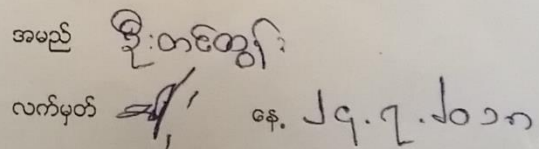 အမည် ဦးတင်ထွန်း
လက်မှတ် နေ့ ၂၄.၇.၂၀၁၈